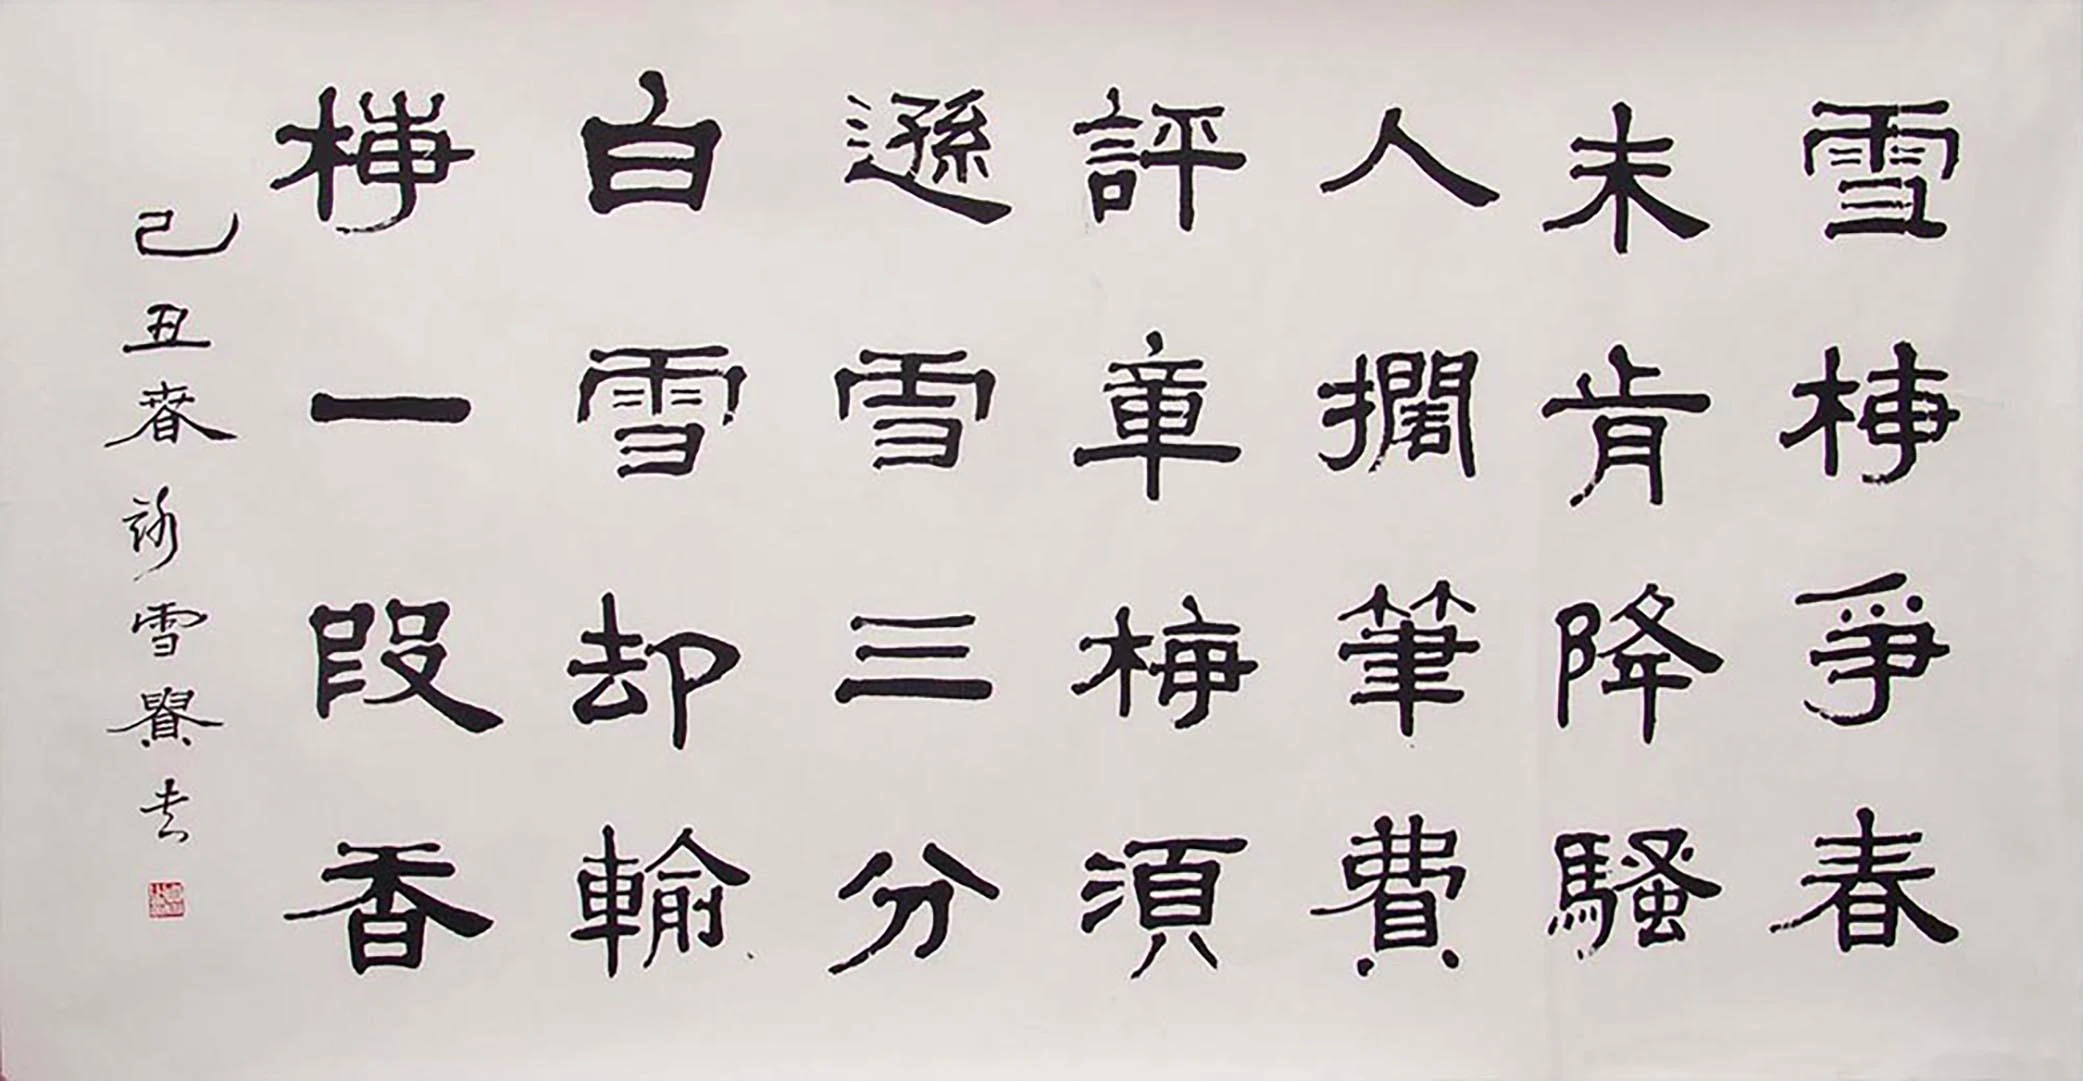 雪梅爭春
未肯降騷
人擱筆費
評章梅須
遜雪三分
白雪却輸
梅一段香
己丑春詠雪